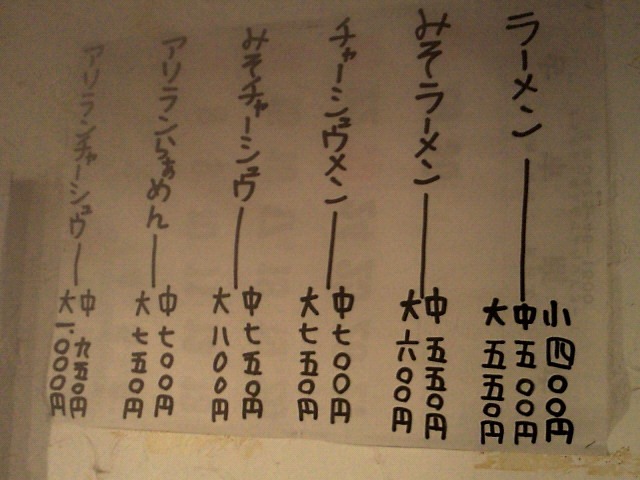 ラーメン
小 四〇〇円
中 五〇〇円
大 五五〇円
みそラーメン
中 五五〇円
大 六〇〇円
チャーシュウメン
中 七〇〇円
大 七五〇円
みそチャーシュウ
中 七五〇円
大 八〇〇円
アリランらぁめん
中 七〇〇円
大 七五〇円
アリランチャーシュウ
中 九五〇円
大 一、〇〇〇円